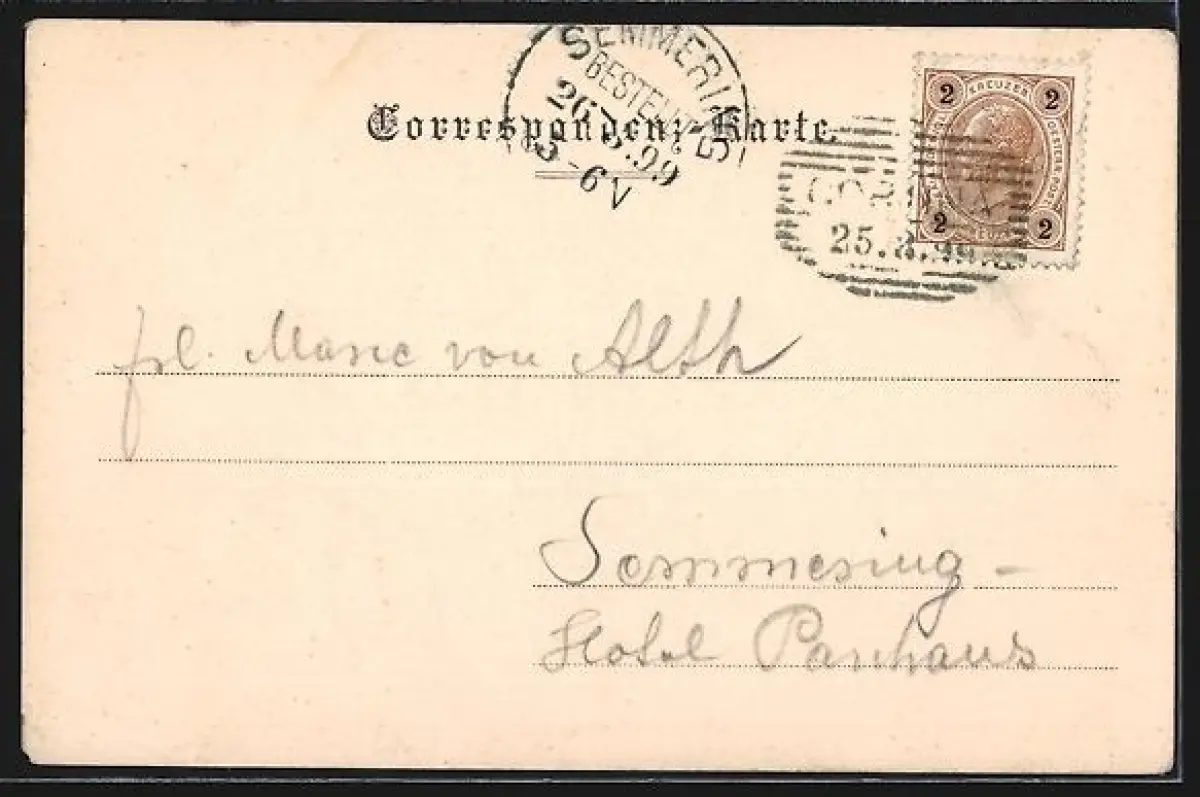 SEMMERING
BESTELLT
26. .99
-6V
5
Correspondenz-Karte.
2 KREUZER 2
OESTERR. POST
2 2
25.8.99
frl. Marie von Alth
Semmering -
Hotel Panhans